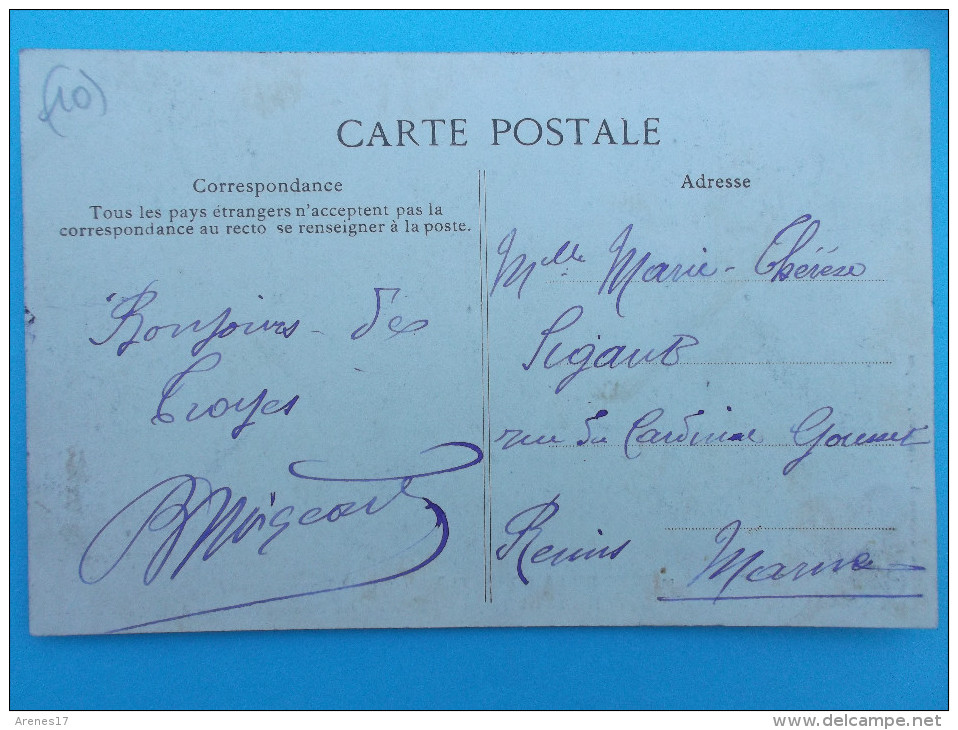 (10)
CARTE POSTALE
Correspondance
Tous les pays étrangers n'acceptent pas la
correspondance au recto se renseigner à la poste.
Bonjours - de
Troyes
Adresse
Mlle Marie-Thérèse
Sigault
rue du Cardinal Gousset
Reims
Marne
Arenes17
www.delcampe.net